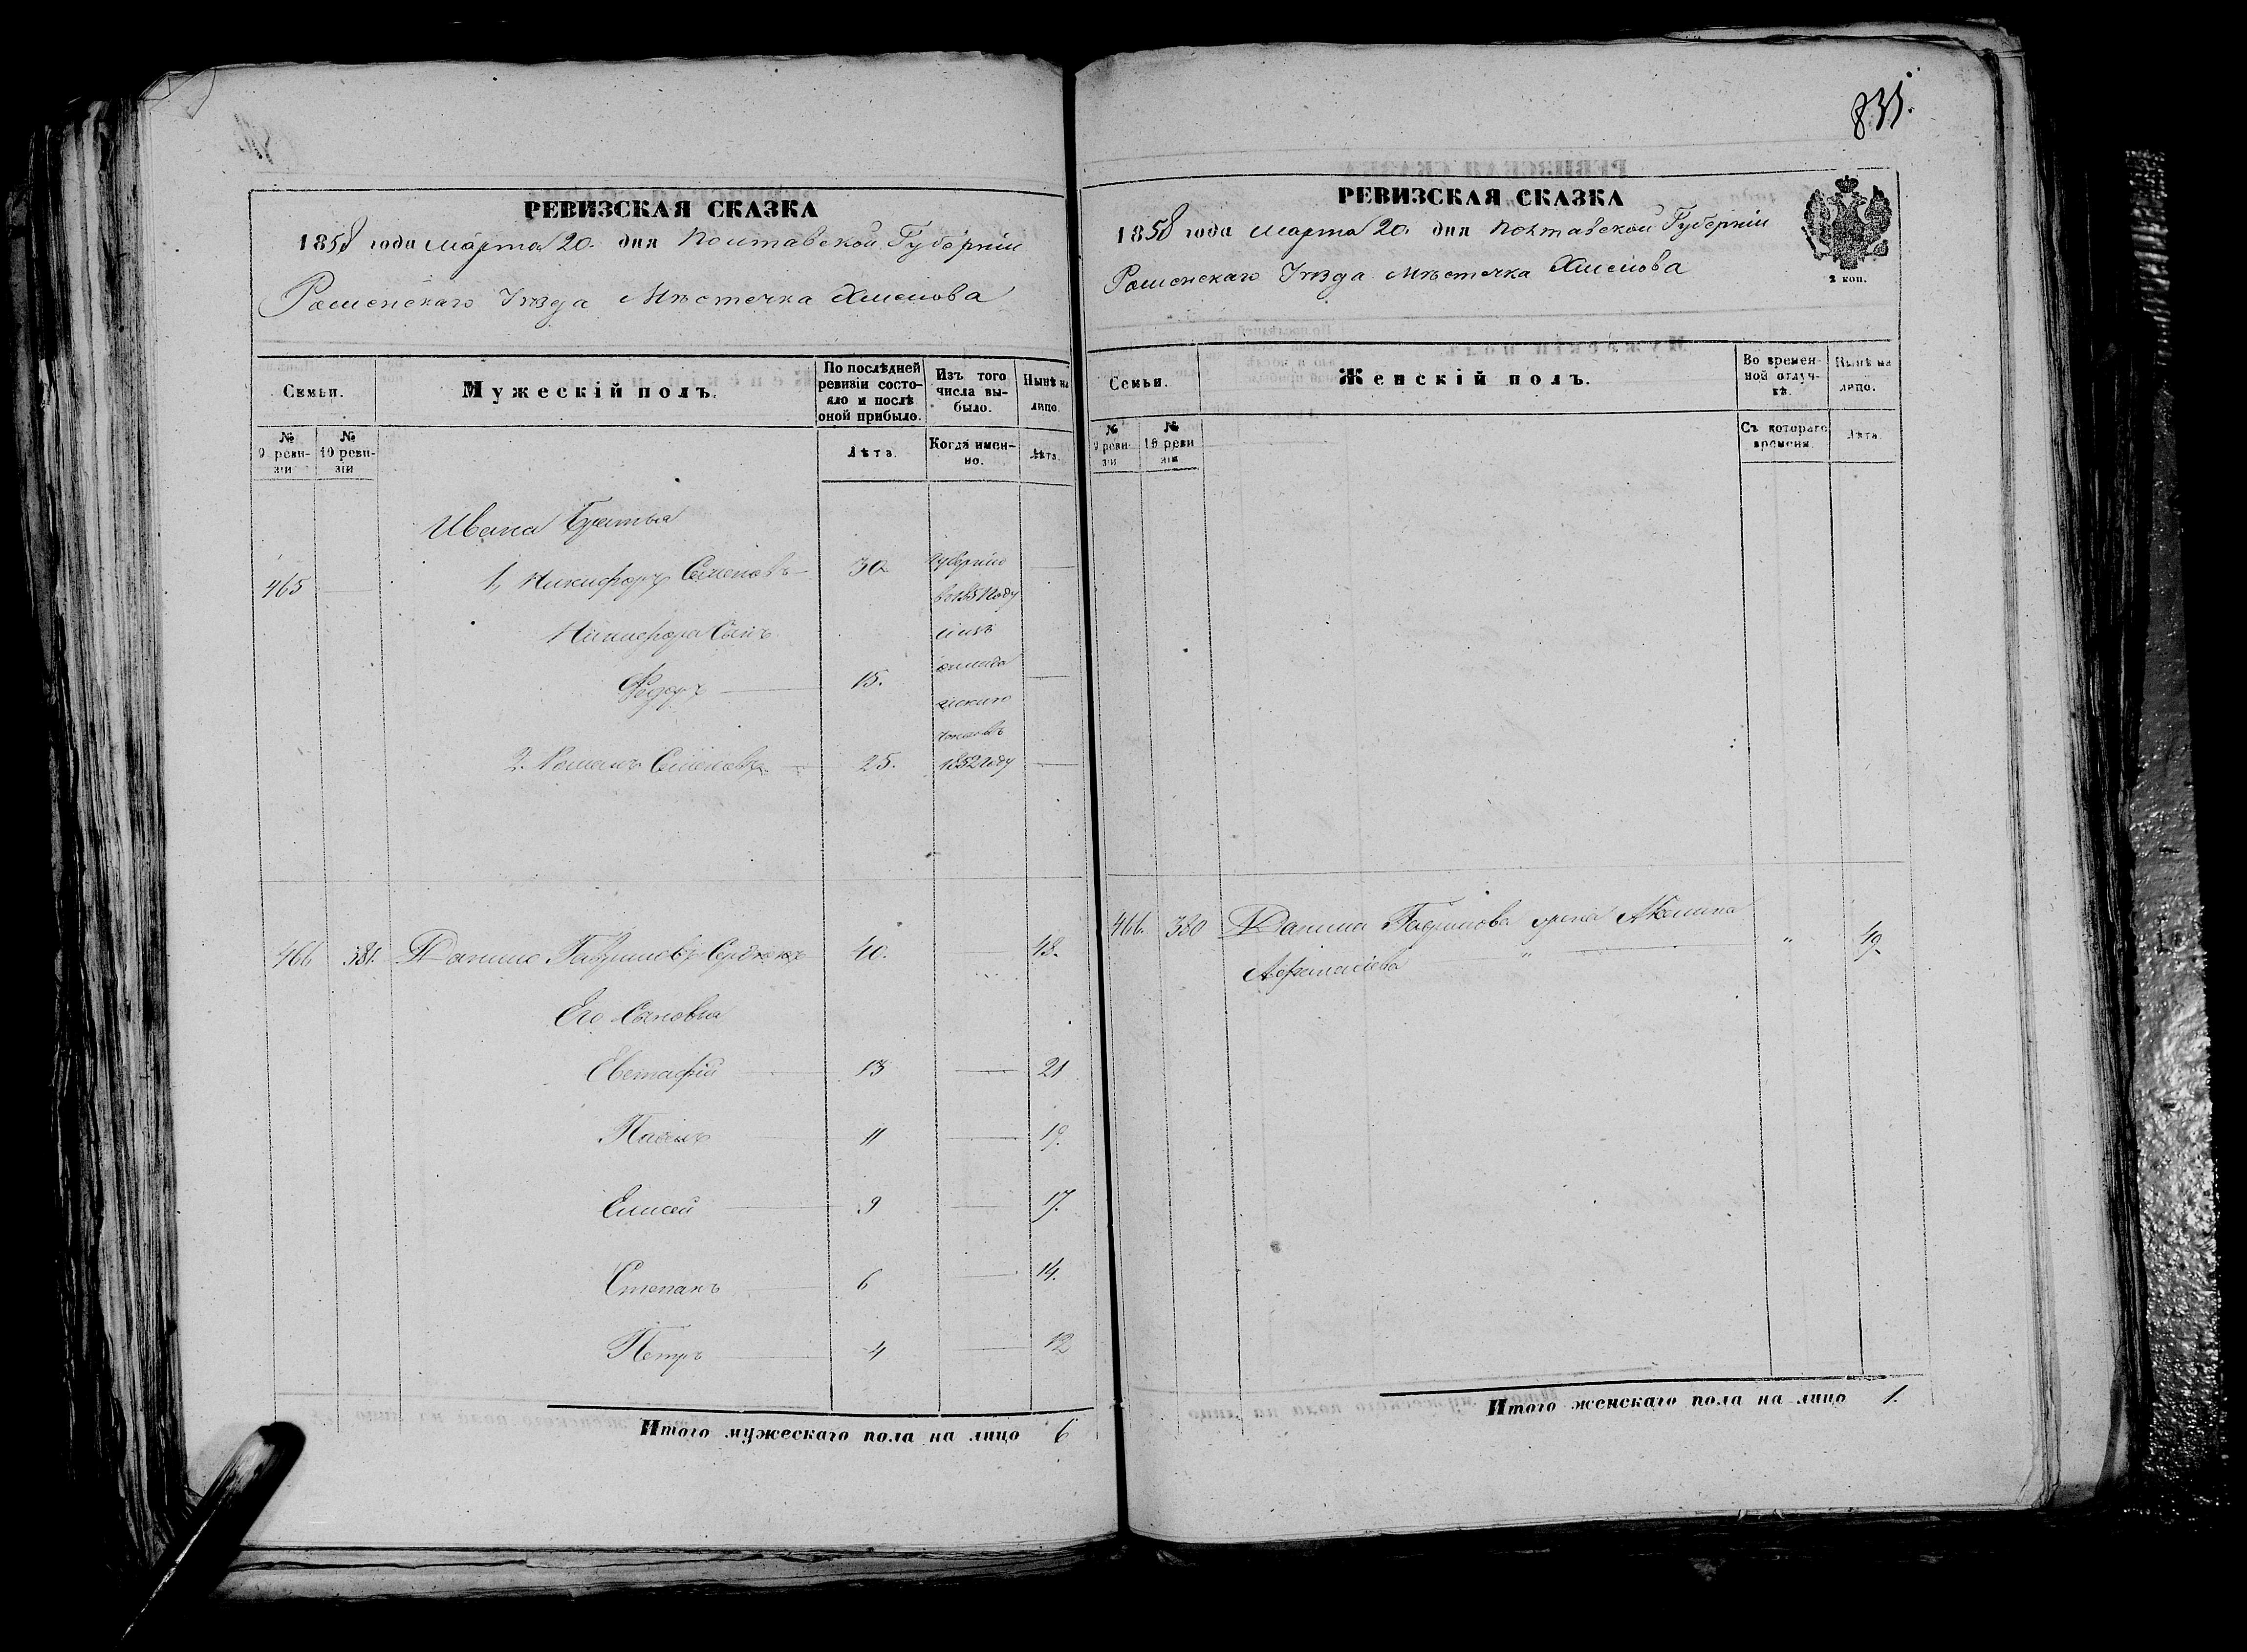 РЕВИЗСКАЯ СКАЗКА
1858 года Марта 20. дня Полтавской Губерніи
Роменскаго Уѣзда Мѣстечка Хмелова
Семьи.
Мужескій полъ.
По послѣдней ревизіи состояло и послѣ оной прибыло.
Изъ того числа выбыло.
Нынѣ на лицо.
№ 9 ревизіи
№ 10 ревизіи
Лѣта.
Когда именно.
Лѣта.
Ивана Братья
465 1, Никифоръ Семеновъ 30
Никифора Сынъ
Федоръ 15.
2. Романъ Семеновъ 25. 1852 году
466 381. Данило Гавриловъ Сердюкъ 40. 48.
Его Сыновья
Евстафій 13 21
Павелъ 11 19.
Елисей 9 17.
Степанъ 6 14.
Петръ 4 12
Итого мужескаго пола на лицо 6
835.
РЕВИЗСКАЯ СКАЗКА
1858 года Марта 20. дня Полтавской Губерніи
Роменскаго Уѣзда Мѣстечка Хмелова
2 коп.
Семьи.
Женскій полъ.
Во временной отлучкѣ.
Нынѣ на лицо.
№ 9 ревизіи
№ 10 ревизіи
Съ котораго времени.
Лѣта.
466. 380 Данила Гаврилова жена Акилина
Афанасіева " " 49.
Итого женскаго пола на лицо 1.